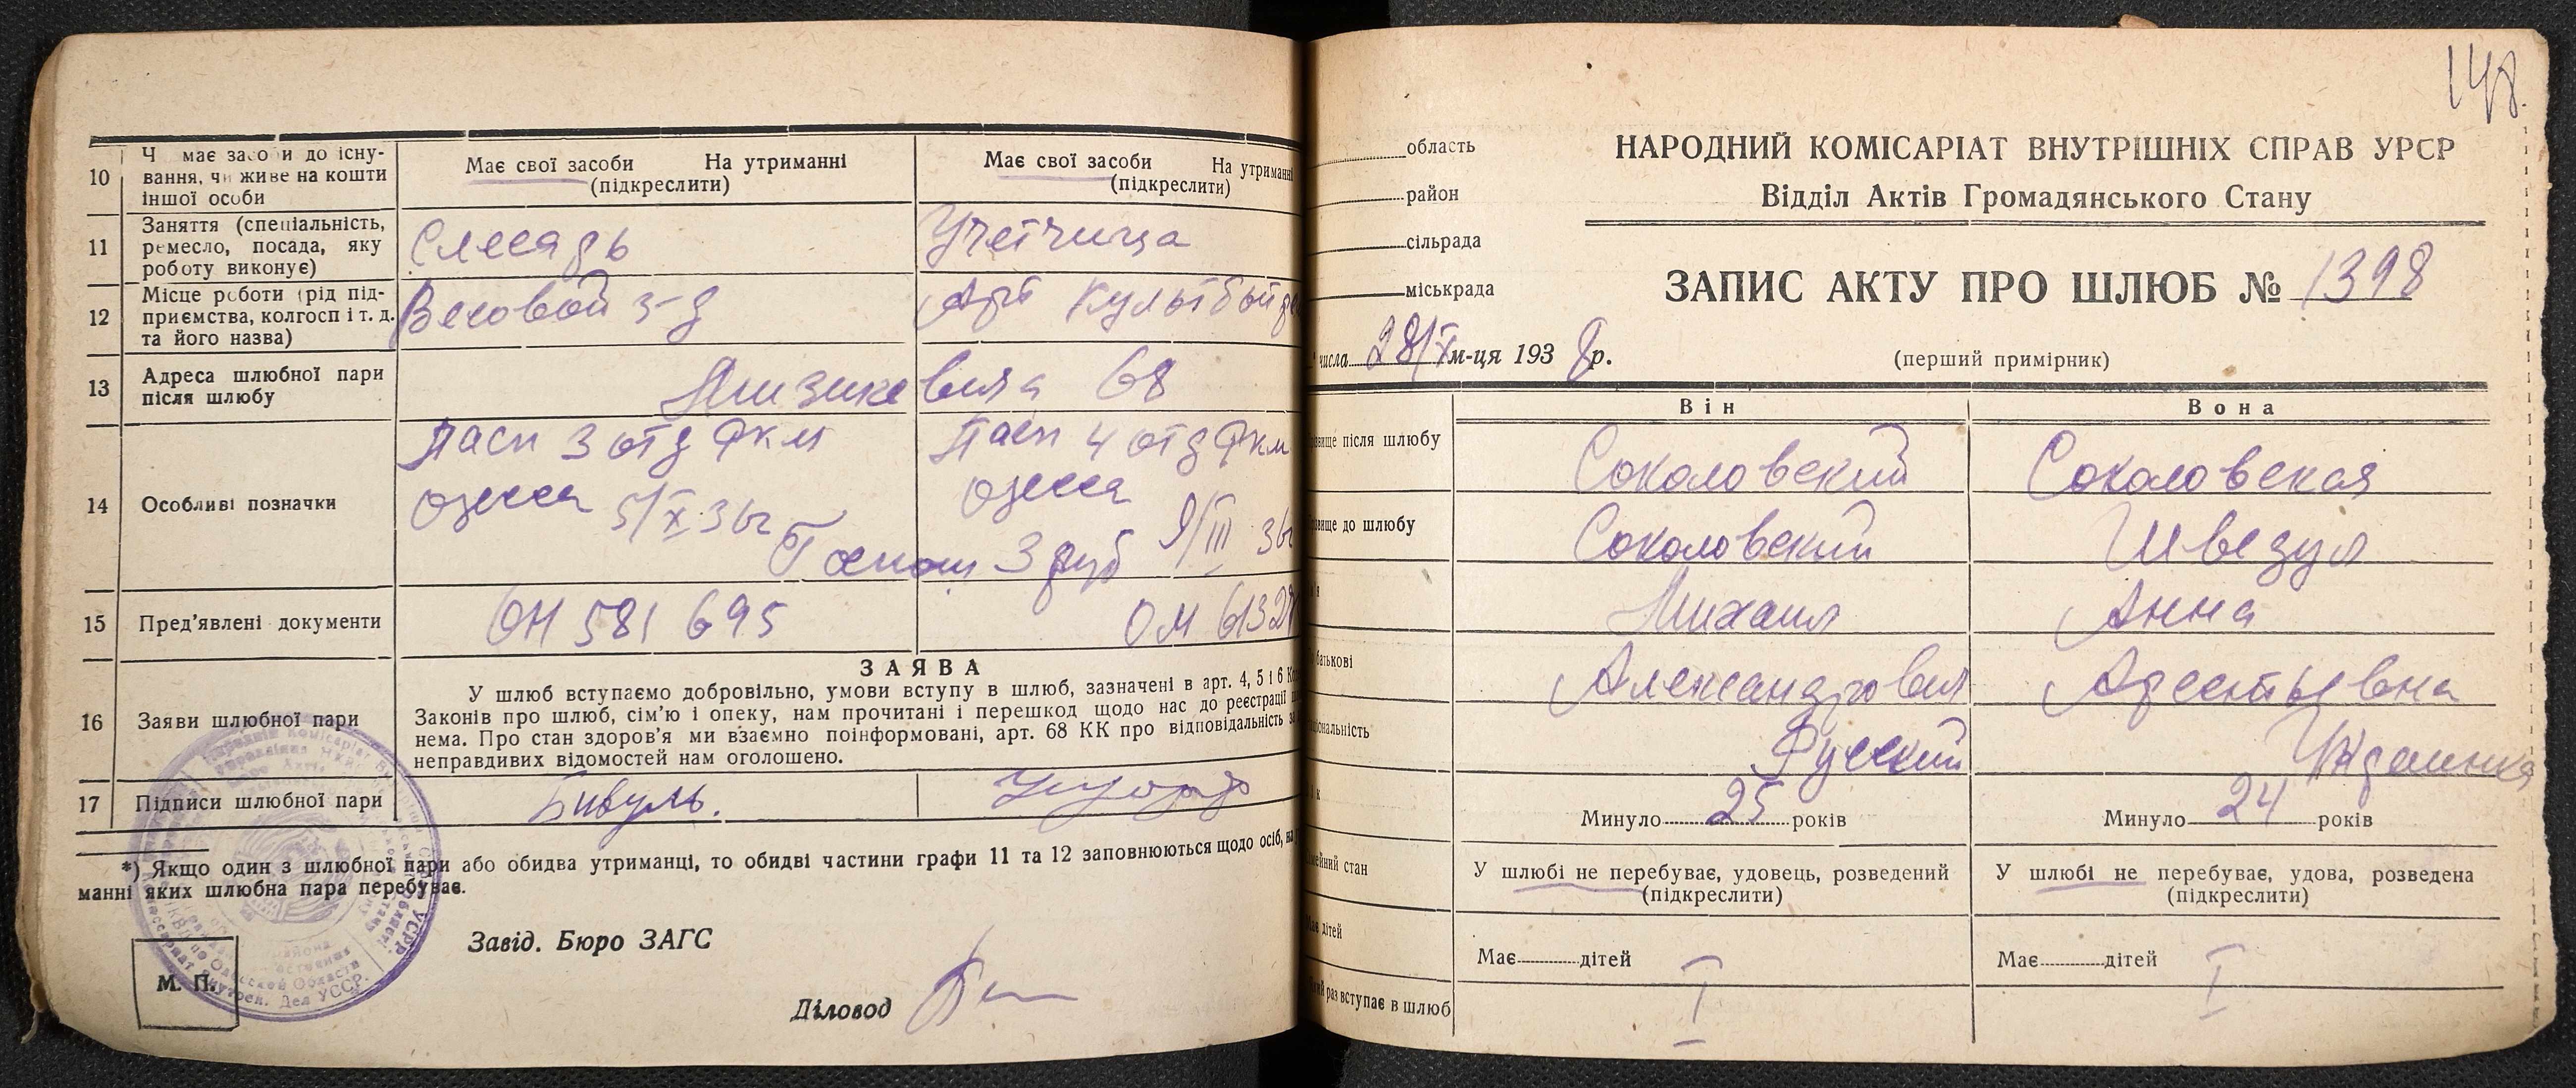 10
Ч має засоби до існу-
вання, чи живе на кошти
іншої особи
Має свої засоби На утриманні
(підкреслити)
Має свої засоби На утриманні
(підкреслити)
11
Заняття (спеціальність,
ремесло, посада, яку
роботу виконує)
Слесарь
Учетчица
12
Місце роботи (рід під-
приємства, колгосп і т. д.
та його назва)
Весовой з-д
Арт Культбыт
13
Адреса шлюбної пари
після шлюбу
68
14
Особливі позначки
Пасп 3 отд РКМ
Одесса 5/X 36г
Пасп 4 отд РКМ
Одесса
9/III 36г
3 руб
15
Пред'явлені документи
ОН 581 695
ОМ 6132
16
Заяви шлюбної пари
ЗАЯВА
У шлюб вступаємо добровільно, умови вступу в шлюб, зазначені в арт. 4, 5 і 6
Законів про шлюб, сім'ю і опеку, нам прочитані і перешкод щодо нас до реєстрації
нема. Про стан здоров'я ми взаємно поінформовані, арт. 68 КК про відповідальність
неправдивих відомостей нам оголошено.
17
Підписи шлюбної пари
*) Якщо один з шлюбної пари або обидва утриманці, то обидві частини графи 11 та 12 заповнюються щодо осіб, на
манні яких шлюбна пара перебуває.
Завід. Бюро ЗАГС
М. П.
Діловод
148
область
район
сільрада
міськрада
НАРОДНИЙ КОМІСАРІАТ ВНУТРІШНІХ СПРАВ УРСР
Відділ Актів Громадянського Стану
ЗАПИС АКТУ ПРО ШЛЮБ № 1398
числа 28/X м-ця 1938 р.
(перший примірник)
Він
Вона
після шлюбу
Соколовский
Соколовская
до шлюбу
Соколовский
Михаил
Анна
батькові
Александрович
Арсентьевна
Русский
Минуло 25 років
Минуло 24 років
стан
У шлюбі не перебуває, удовець, розведений
(підкреслити)
У шлюбі не перебуває, удова, розведена
(підкреслити)
дітей
Має дітей
Має дітей
раз вступає в шлюб
I
I